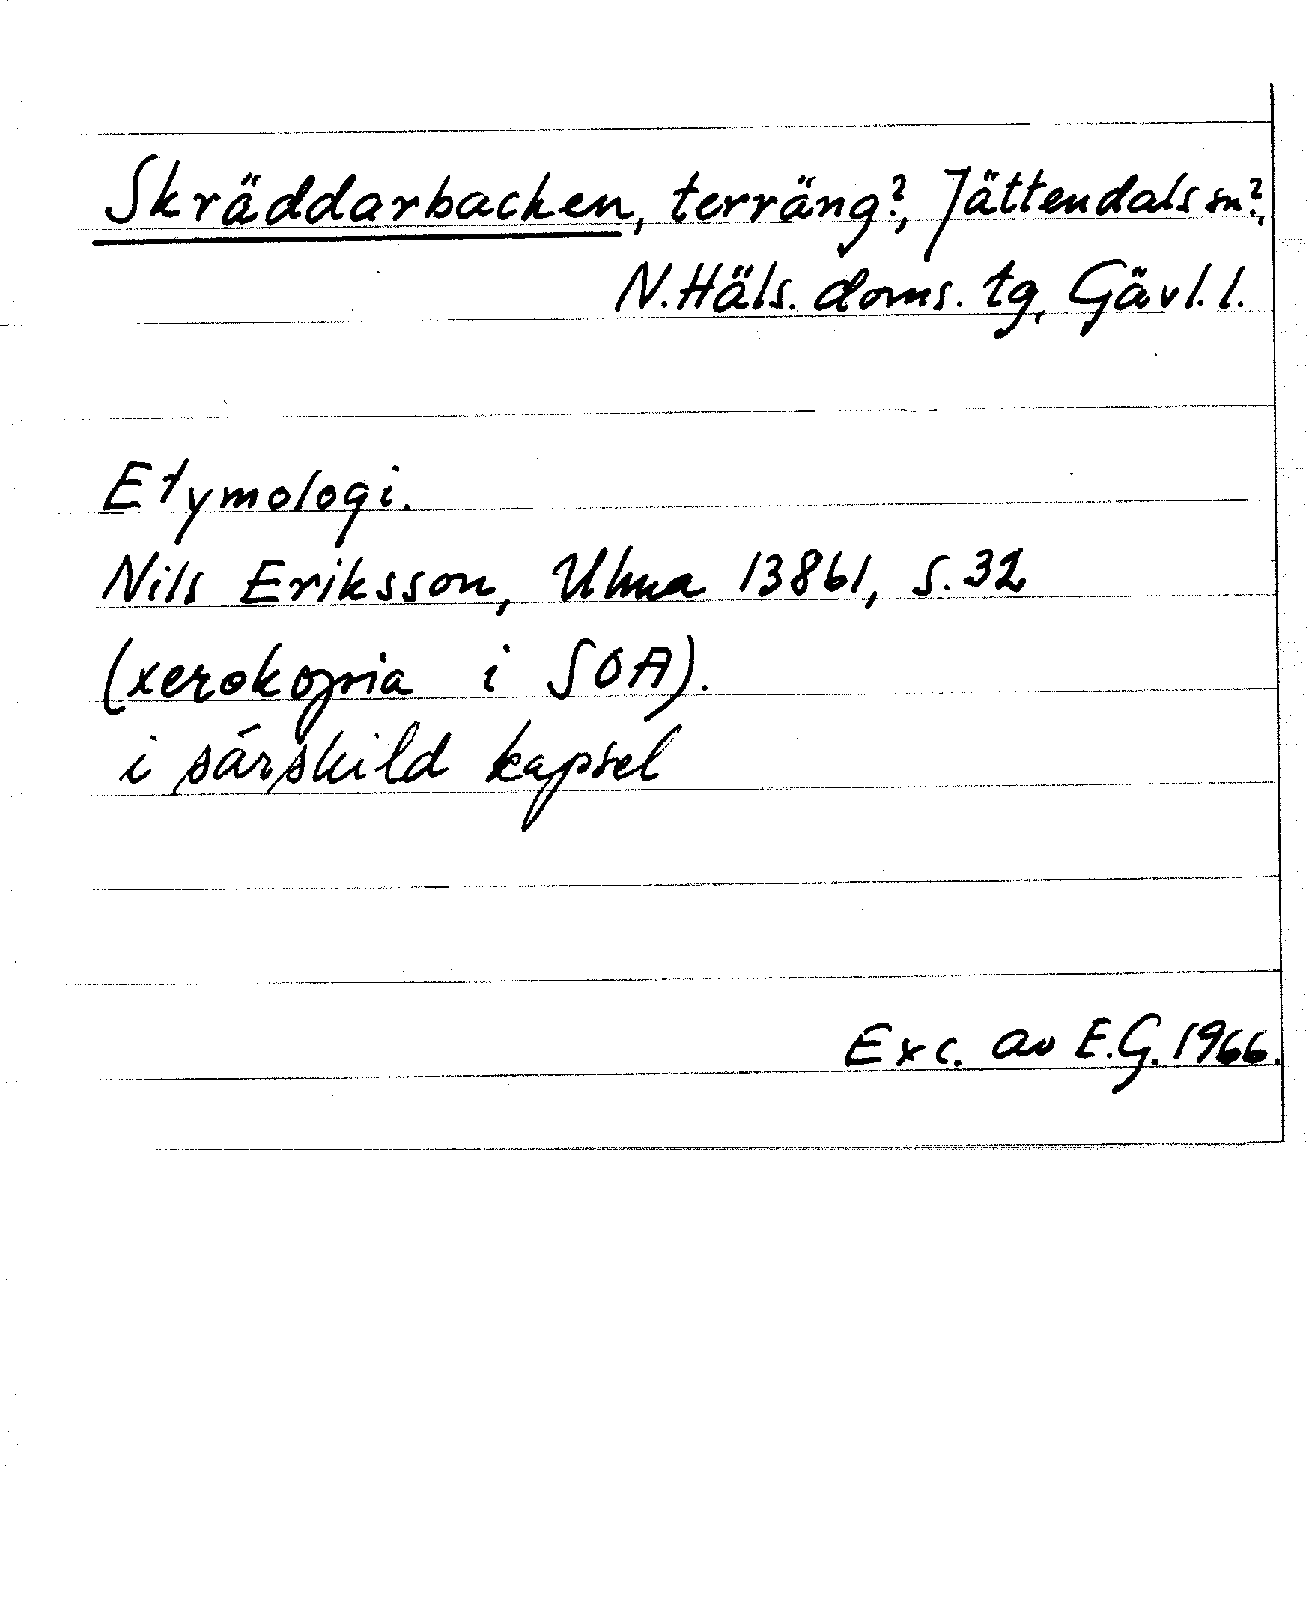 Skräddarbacken, terräng?, Jättendals sn?,
N. Häls. doms. tg, Gävl. l.
Etymologi.
Nils Eriksson, Ulma 13861, s. 32
(xerokopia i SOA).
i särskild kapsel
Exc. av E.G. 1966.